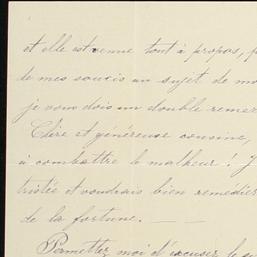 et elle est venue tout à propos, p
de mes soucis un sujet de mo
je vous dois un double remer
Chère et généreuse cousine,
à combattre le malheur ! J
tristée et voudrais bien remédier
de la fortune. — —
Permettez moi d'excuser le